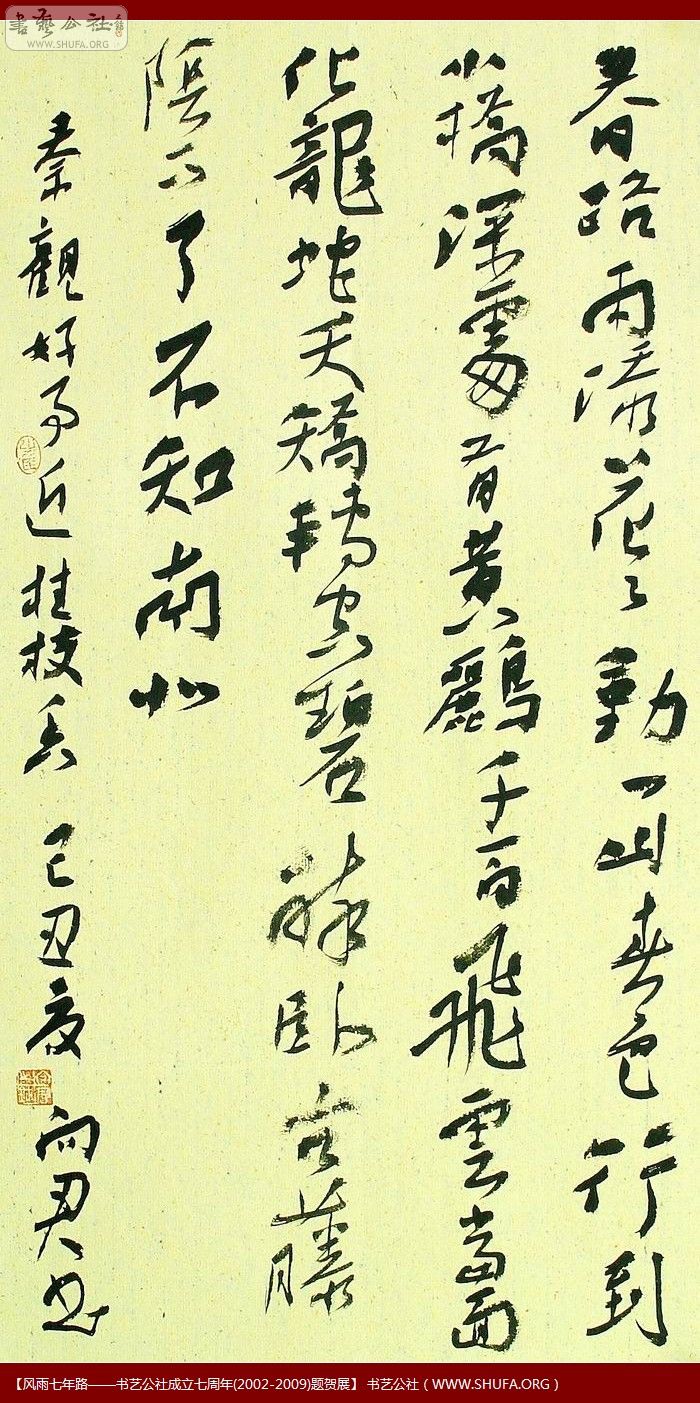 書藝公社
www.SHUFA.ORG
春路雨添花々動一山春色行到
小橋深處有黃鸝千百飛雲當面
化龍蛇夭矯轉空碧醉卧古藤
陰下了不知南北
秦觀好事近桂枝香 己丑夏 向君书
【风雨七年路——书艺公社成立七周年(2002-2009)题贺展】 书艺公社（WWW.SHUFA.ORG）